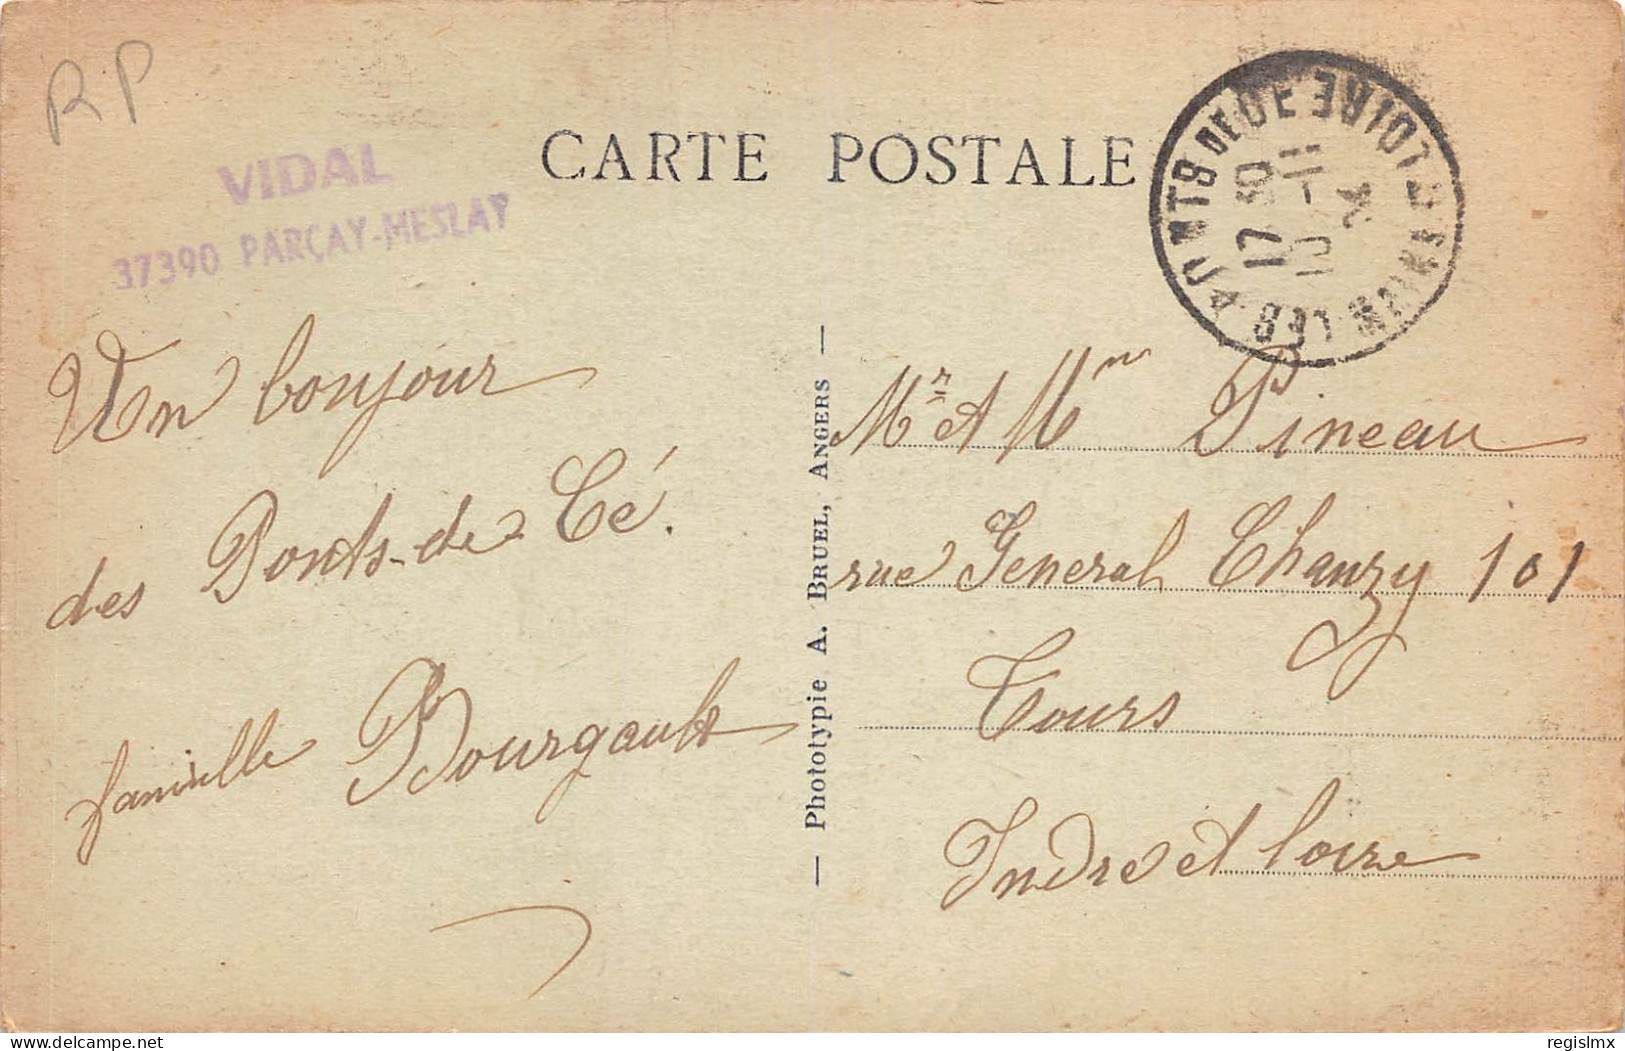 RP
VIDAL
37390 PARÇAY-MESLAY
CARTE POSTALE
17 30
11
24
MAINE ET LOIRE
Un bonjour
des Ponts-de-Cé.
famille Bourgault
— Phototypie A. BRUEL, ANGERS —
Mr et Mm Pineau
rue General Chanzy 101
Tours
Indre et loire
delcampe.net
regislmx